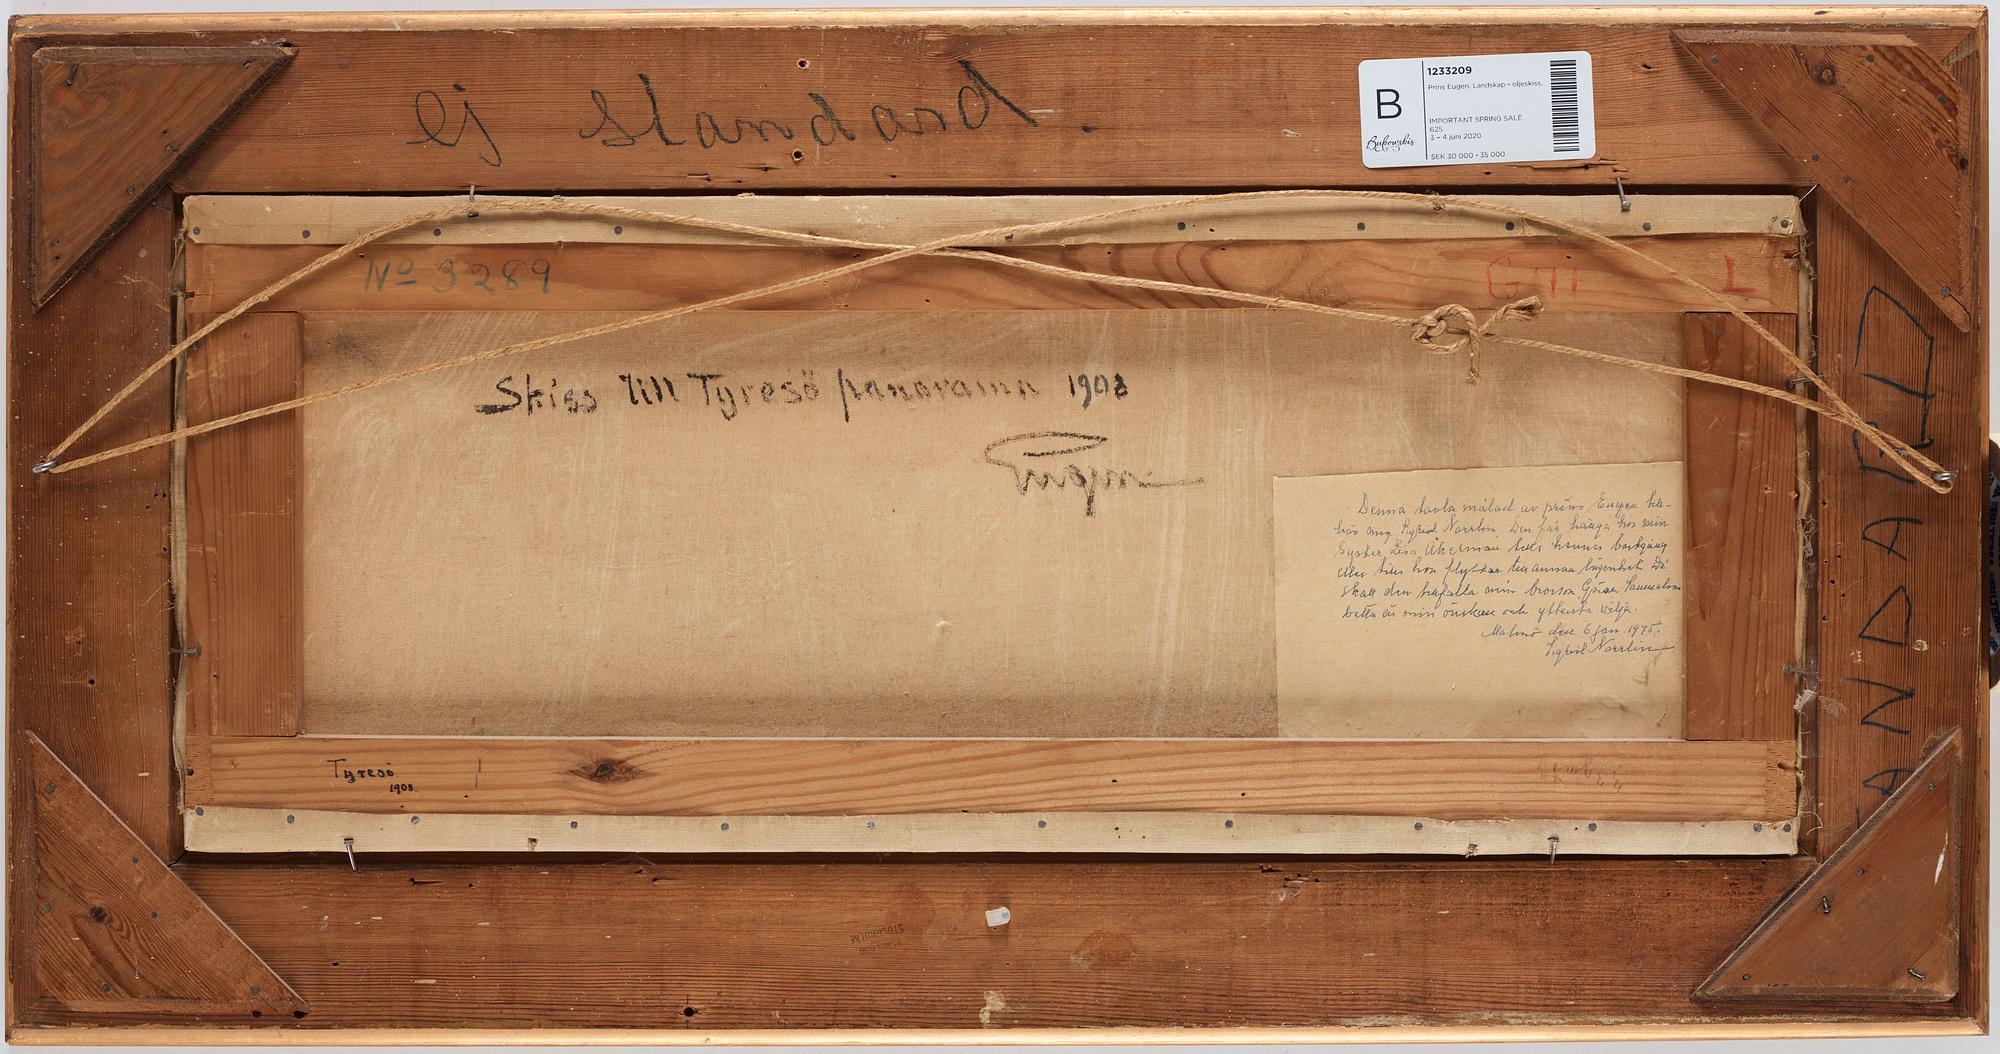 ej standard.
B
Bukowskis
1233209
Prins Eugen, Landskap - oljeskiss.
IMPORTANT SPRING SALE
625
3 - 4 juni 2020
SEK 30 000 - 35 000
No 3289
G 711
L
Skiss till Tyresö panorama 1908
Eugen
Denna tavla målad av prins Eugen till-
hör mig, Sigrid Norrlin. Den får hänga hos min
Syster Lisa Åkerman tills hennes bortgång
eller tills hon flyttar till annan lägenhet. Då
skall den tillfalla min brorson, Göran Samuelson
Detta är min önskan och yttersta vilja.
Malmö den 6 jan. 1975.
Sigrid Norrlin
Tyresö
1908
ANDARD
STOCKHOLM